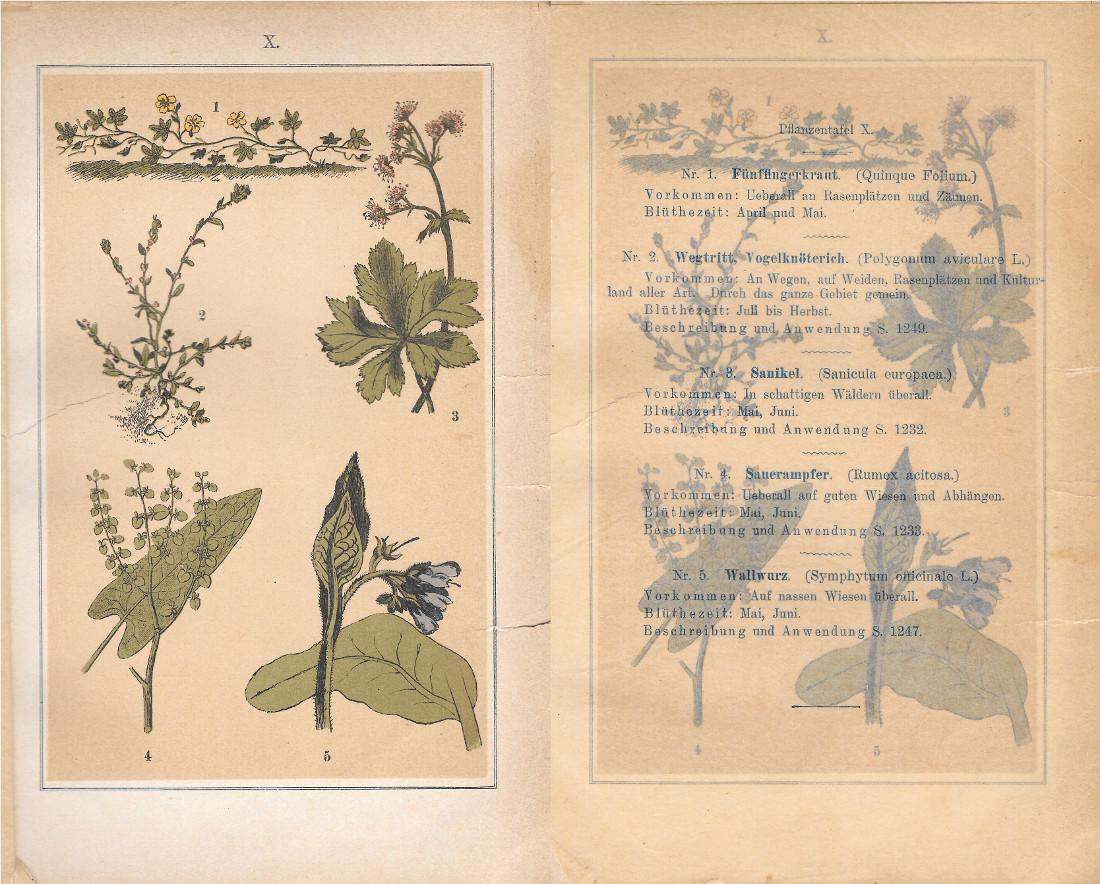 X.
1
2
3
4
5
X.
1
Pflanzentafel X.
Nr. 1. Fünffingerkraut. (Quinque Folium.)
Vorkommen: Ueberall an Rasenplätzen und Zäunen.
Blüthezeit: April und Mai.
Nr. 2. Wegtritt, Vogelknöterich. (Polygonum aviculare L.)
Vorkommen: An Wegen, auf Weiden, Rasenplätzen und Kultur-
land aller Art. Durch das ganze Gebiet gemein.
Blüthezeit: Juli bis Herbst.
Beschreibung und Anwendung S. 1249.
Nr. 3. Sanikel. (Sanicula europaea.)
Vorkommen: In schattigen Wäldern überall.
Blüthezeit: Mai, Juni.
3
Beschreibung und Anwendung S. 1232.
Nr. 4. Sauerampfer. (Rumex acitosa.)
Vorkommen: Ueberall auf guten Wiesen und Abhängen.
Blüthezeit: Mai, Juni.
Beschreibung und Anwendung S. 1233.
Nr. 5. Wallwurz. (Symphytum officinale L.)
Vorkommen: Auf nassen Wiesen überall.
Blüthezeit: Mai, Juni.
Beschreibung und Anwendung S. 1247.
4
5